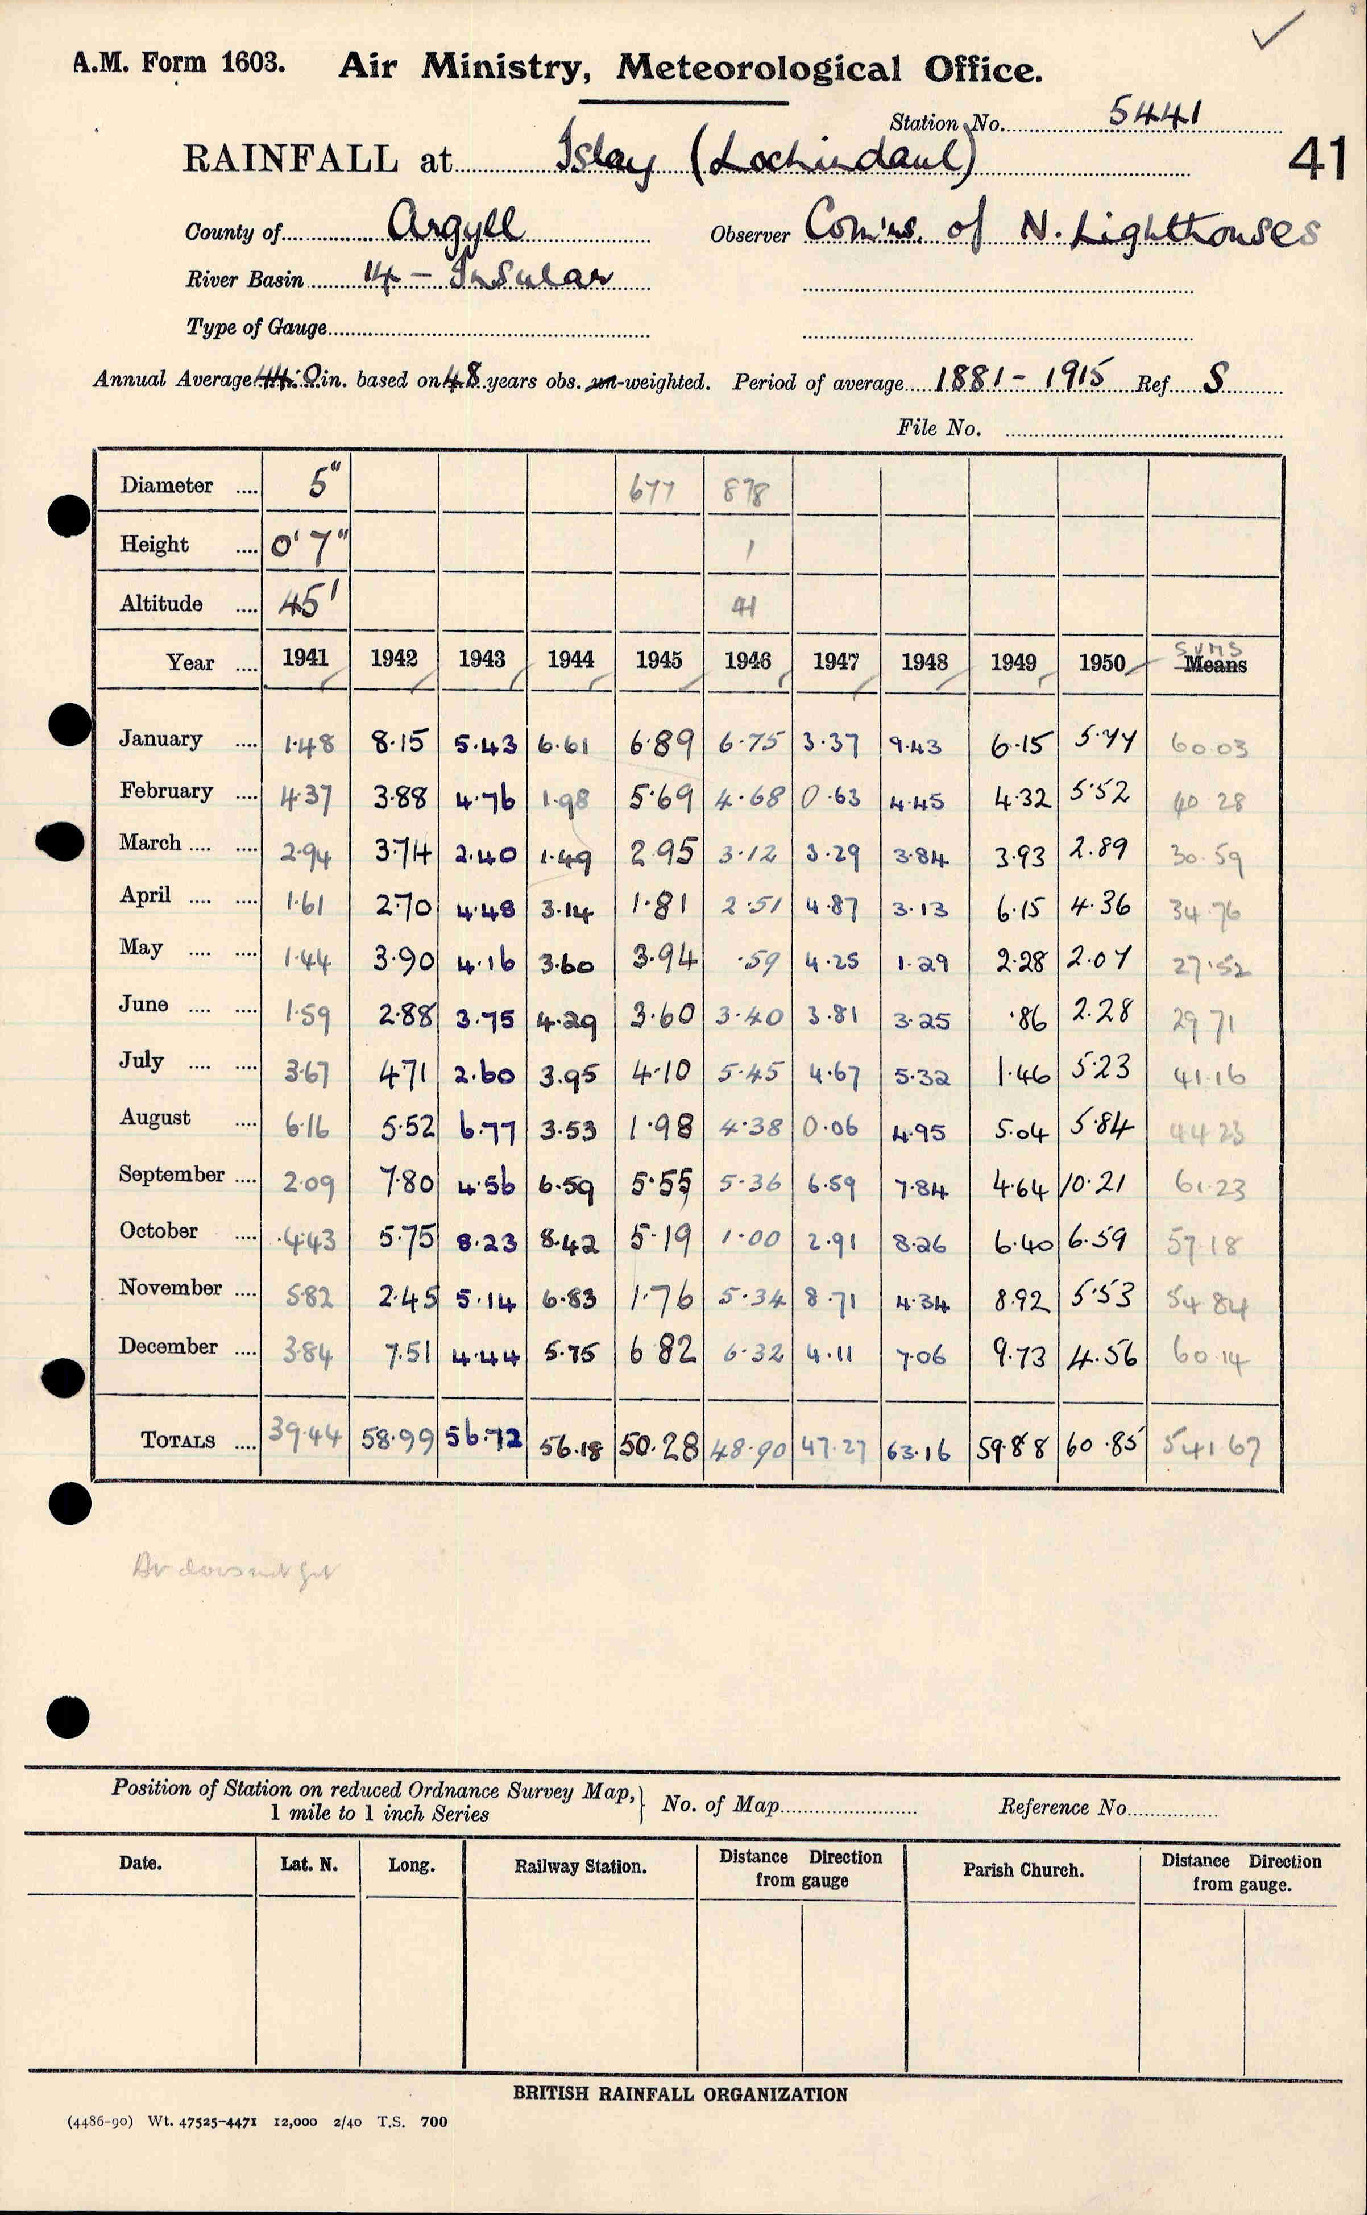 A.M. Form 1603. Air Ministry, Meteorological Office.
Station No. 5441
RAINFALL at Islay (Lochindaul) 41
County of Argyll Observer Com'rs. of N. Lighthouses
River Basin 14 - Insular
Type of Gauge
Annual Average 44.0 in. based on 48 years obs. un-weighted. Period of average 1881 - 1915 Ref S
File No.
Diameter .... 5" 677 878
Height .... 0' 7" 1
Altitude .... 45' 41
SUMS
Year .... 1941 1942 1943 1944 1945 1946 1947 1948 1949 1950 Means
January .... 1.48 8.15 5.43 6.61 6.89 6.75 3.37 9.43 6.15 5.77 60.03
February .... 4.37 3.88 4.76 1.98 5.69 4.68 0.63 4.45 4.32 5.52 40.28
March .... .... 2.94 3.74 2.40 1.49 2.95 3.12 3.29 3.84 3.93 2.89 30.59
April .... .... 1.61 2.70 4.48 3.14 1.81 2.51 4.87 3.13 6.15 4.36 34.76
May .... .... 1.44 3.90 4.16 3.60 3.94 .59 4.25 1.29 2.28 2.07 27.52
June .... .... 1.59 2.88 3.75 4.29 3.60 3.40 3.81 3.25 .86 2.28 29.71
July .... .... 3.67 4.71 2.60 3.95 4.10 5.45 4.67 5.32 1.46 5.23 41.16
August .... 6.16 5.52 6.77 3.53 1.98 4.38 0.06 4.95 5.04 5.84 44.23
September .... 2.09 7.80 4.56 6.59 5.55 5.36 6.59 7.84 4.64 10.21 61.23
October .... 4.43 5.75 8.23 8.42 5.19 1.00 2.91 8.26 6.40 6.59 57.18
November .... 5.82 2.45 5.14 6.83 1.76 5.34 8.71 4.34 8.92 5.53 54.84
December .... 3.84 7.51 4.44 5.75 6.82 6.32 4.11 7.06 9.73 4.56 60.14
TOTALS .... 39.44 58.99 56.72 56.18 50.28 48.90 47.27 63.16 59.88 60.85 541.67
Position of Station on reduced Ordnance Survey Map, 1 mile to 1 inch Series } No. of Map Reference No.
Date. Lat. N. Long. Railway Station. Distance Direction from gauge Parish Church. Distance Direction from gauge.
BRITISH RAINFALL ORGANIZATION
(4486-90) Wt. 47525-4471 12,000 2/40 T.S. 700